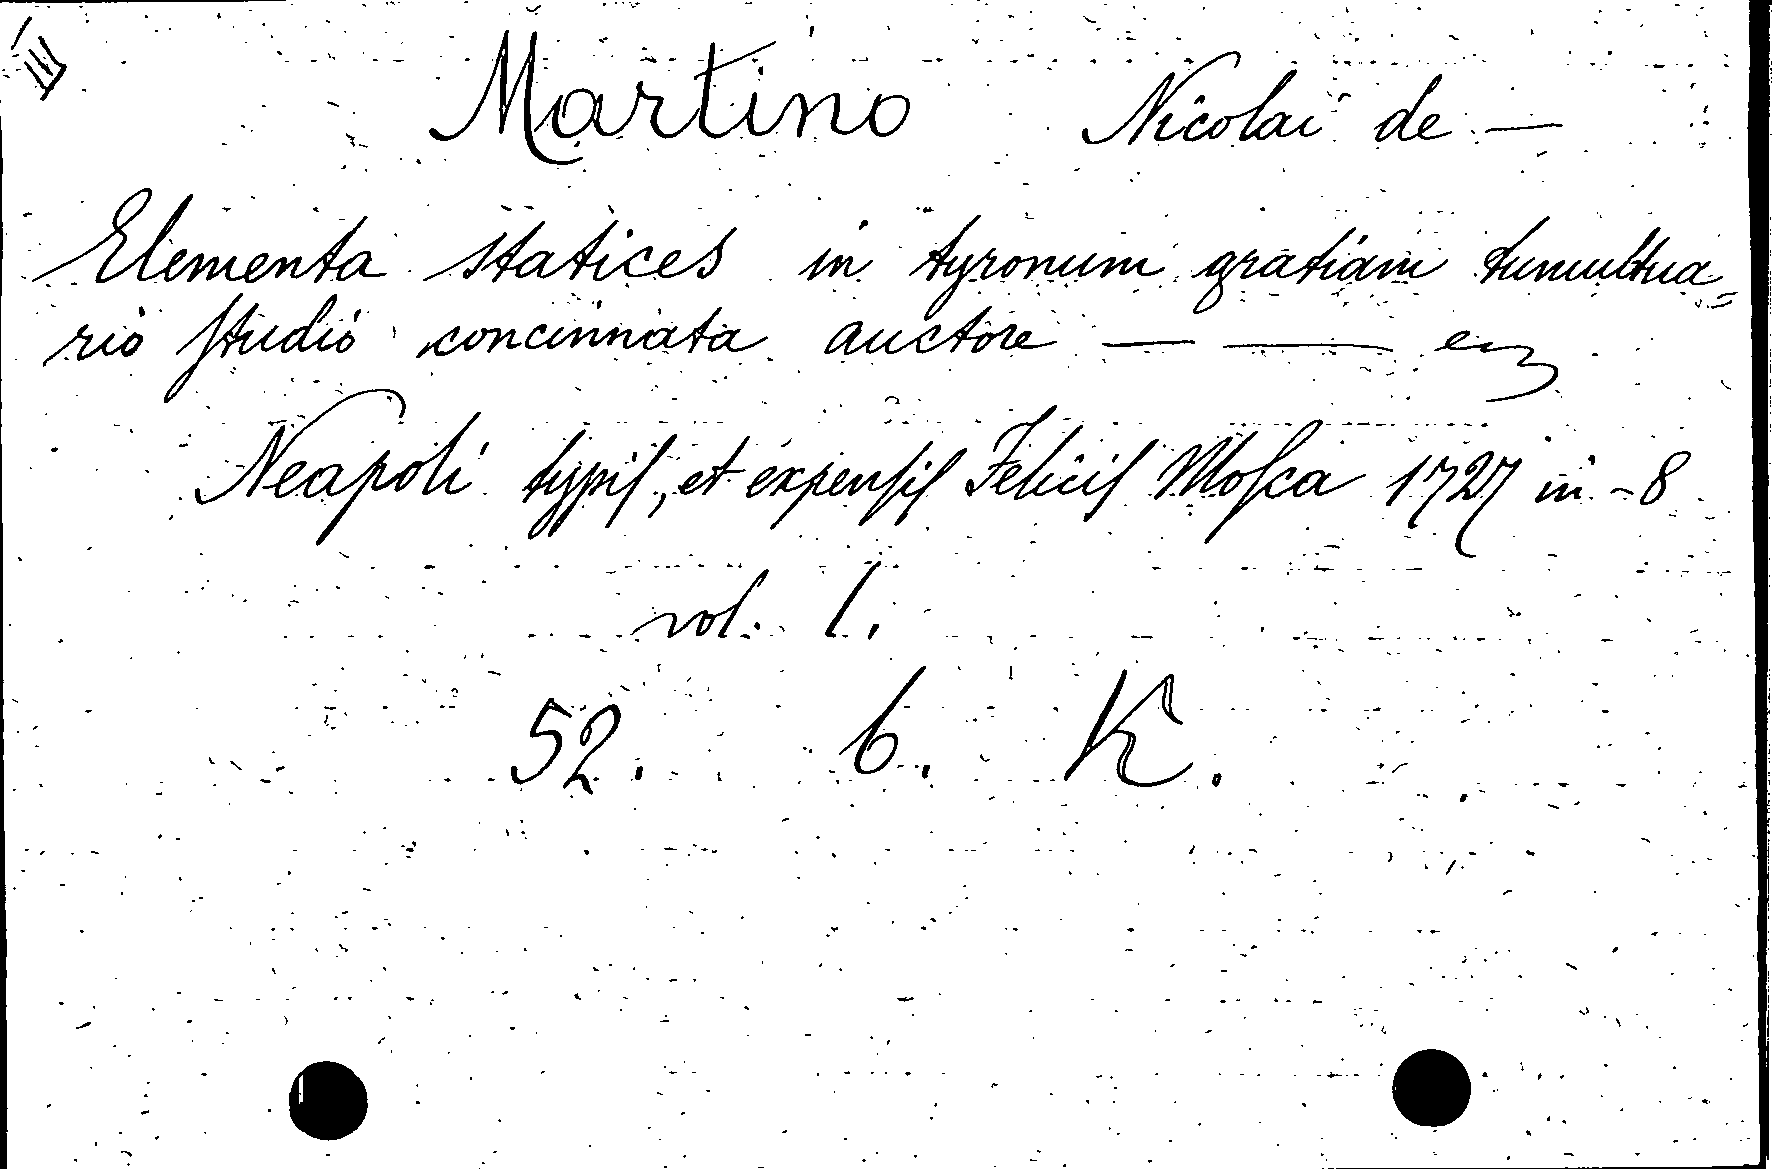 Martino Nicolai de —
Elementa statices in tyronum gratiam tumultua=
rio studio concinnata auctore — —
Neapoli typis, et expensis Felicis Mosca 1727 in-8
vol. 1.
52. 6. K.